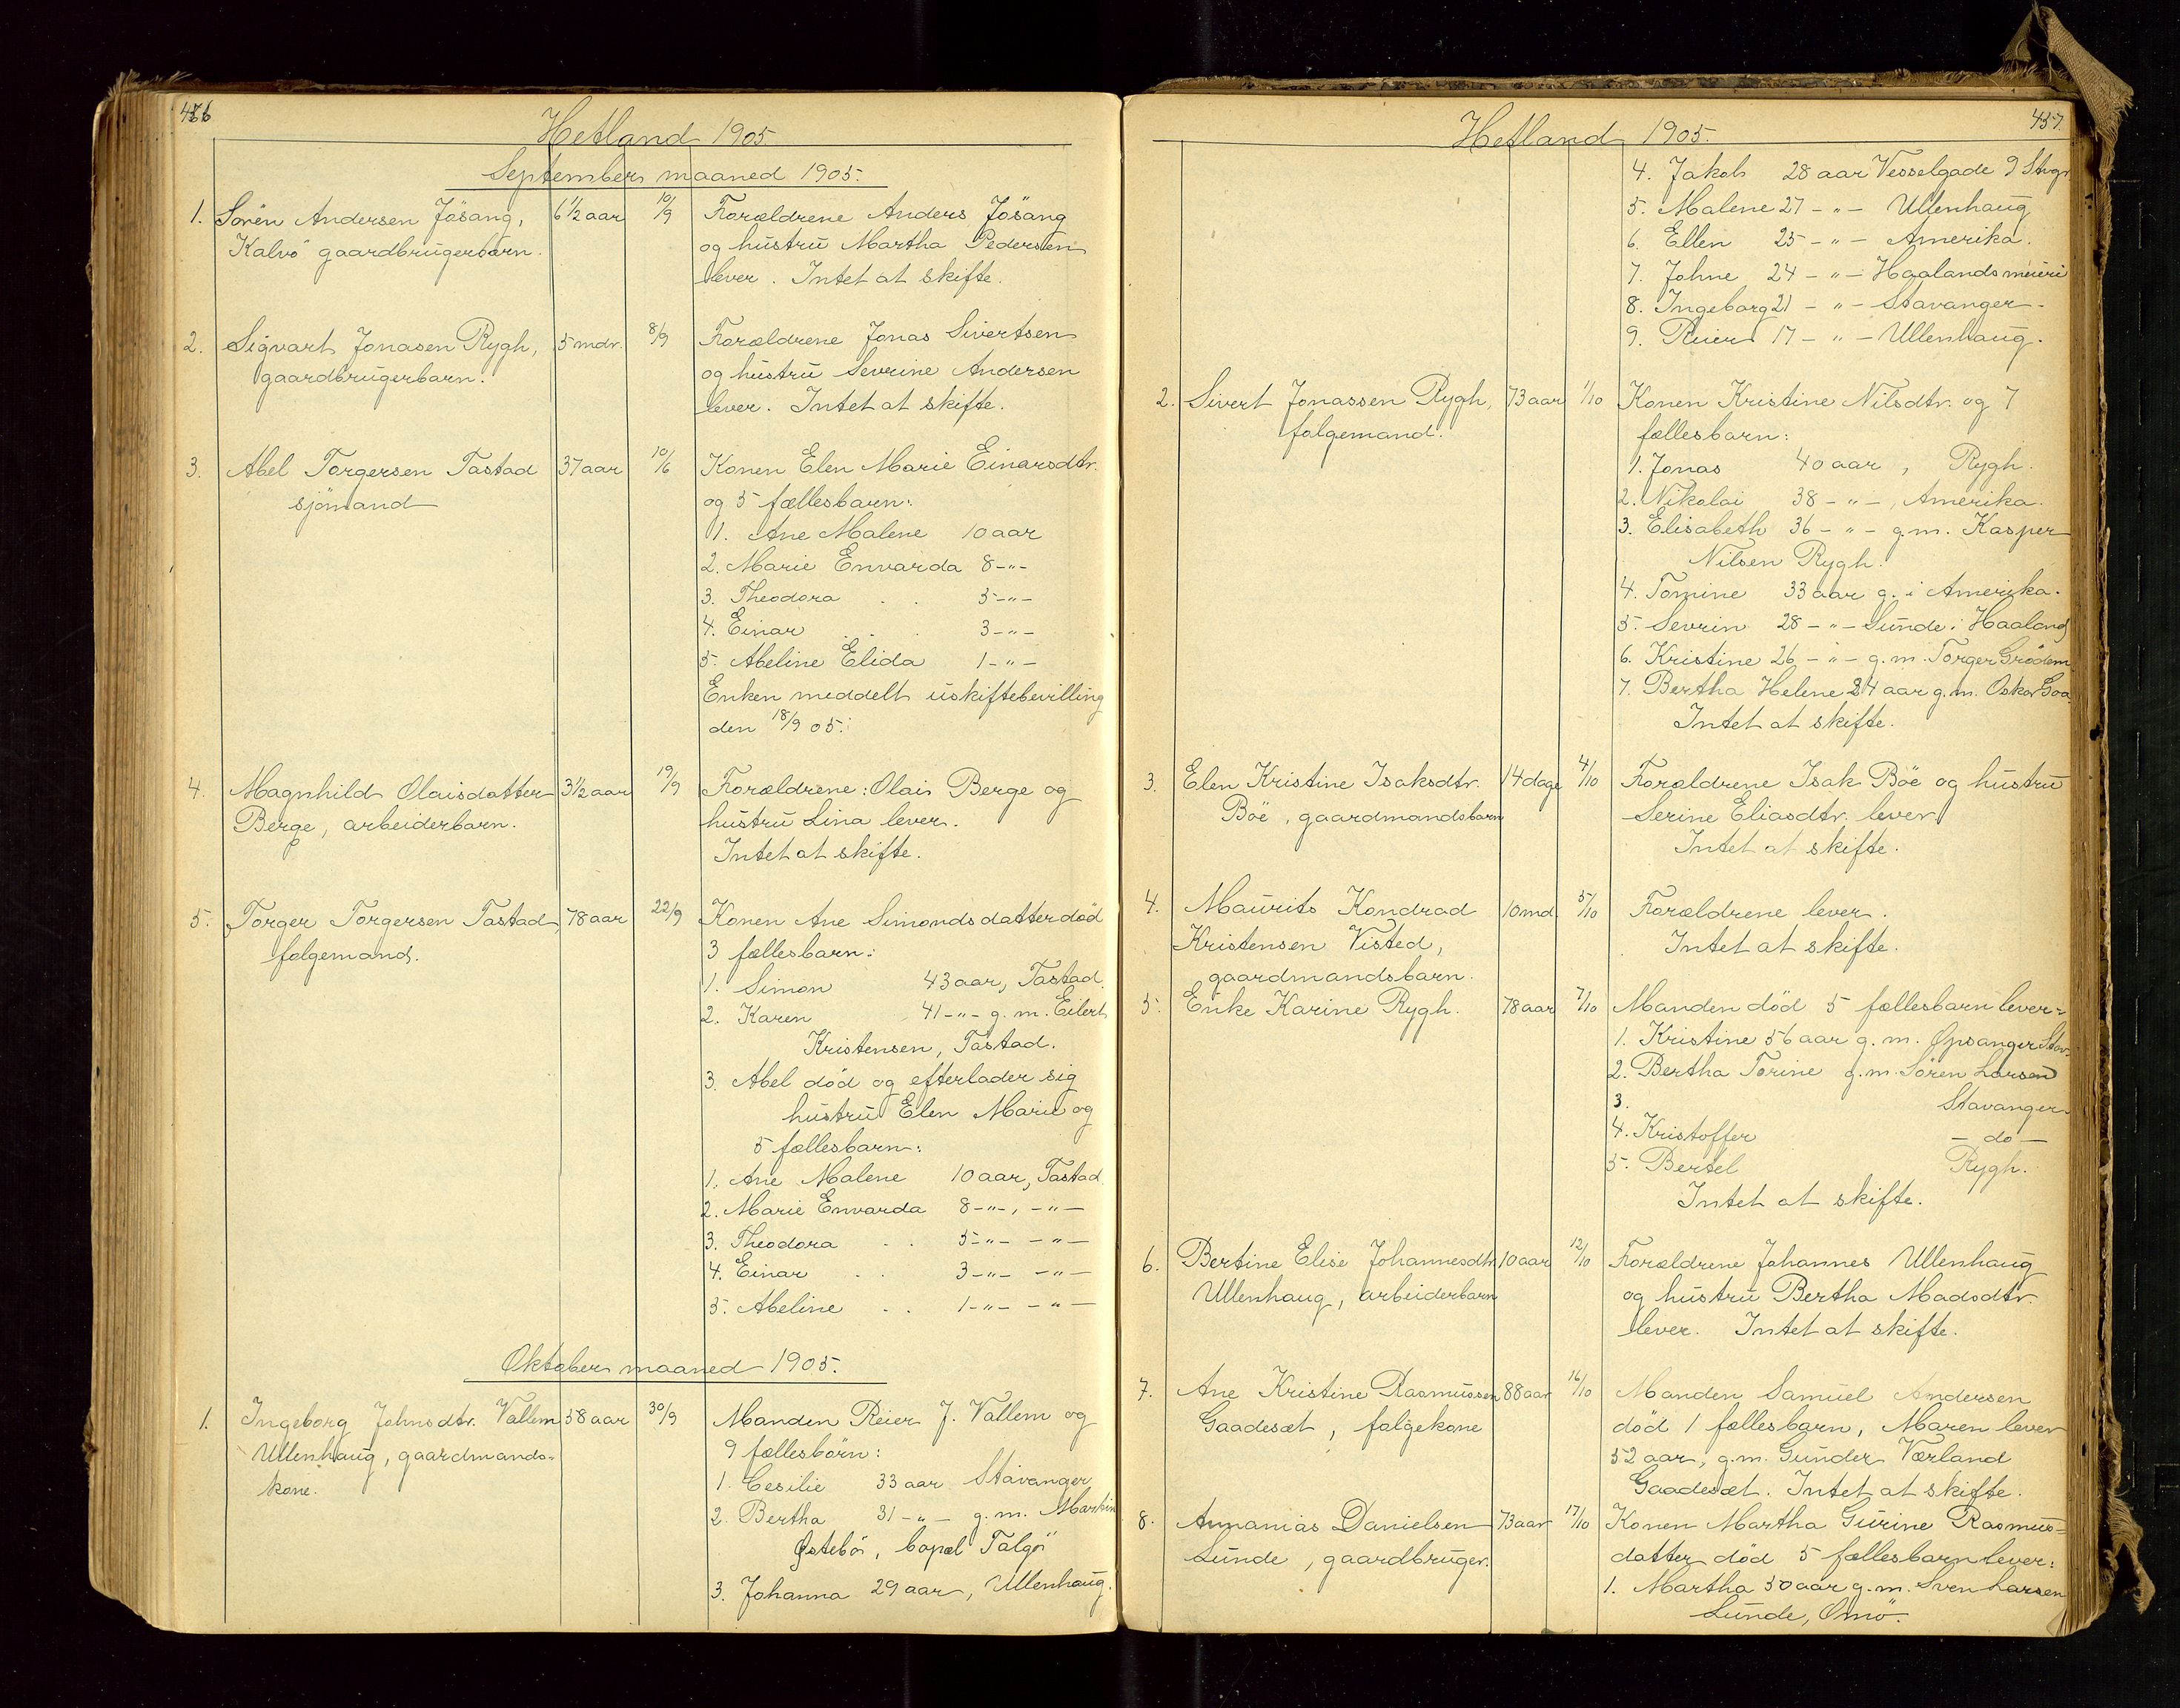 456
Hetland 1905.
September maaned 1905.
1. Sören Andersen Jösang, 6 1/2 aar 10/9 Forældrene Anders Jösang
Kalvö gaardbrugerbarn. og hustru Martha Pedersen
lever. Intet at skifte.
2. Sigvart Jonasen Rygh, 5 mdr. 8/9 Forældrene Jonas Sivertsen
gaardbrugerbarn. og hustru Sevrine Andersen
lever. Intet at skifte.
3. Abel Torgersen Tastad 37 aar 10/6 Konen Elen Marie Einarsdtr.
sjömand og 5 fællesbarn:
1. Ane Malene 10 aar
2. Marie Envarda 8 -"-
3. Theodora . . 5 -"-
4. Einar . . . 3 -"-
5. Abeline Elida 1 -"-
Enken meddelt uskiftebevilling
den 18/9 05.
4. Magnhild Olaisdatter 3 1/2 aar 19/9 Forældrene: Olais Berge og
Berge, arbeiderbarn. hustru Lina lever.
Intet at skifte.
5. Torger Torgersen Tastad, 78 aar 22/9 Konen Ane Simondsdatter död
folgemand. 3 fællesbarn:
1. Simon 43 aar, Tastad.
2. Karen 41 -"- g. m. Eilert
Kristensen, Tastad.
3. Abel död og efterlader sig
hustru Elen Marie og
5 fællesbarn:
1. Ane Malene 10 aar, Tastad
2. Marie Envarda 8 -"-, -"-
3. Theodora . . 5 -"- -"-
4. Einar . . 3 -"- -"-
5. Abeline . . 1 -"- -"-
Oktober maaned 1905.
1. Ingeborg Johnsdtr. Vallem 58 aar 30/9 Manden Reier J. Vallem og
Ullenhaug, gaardmands- 9 fællesbörn:
kone. 1. Cesilie 33 aar Stavanger
2. Bertha 31 -"- g. m. Martin
Østebö, bopæl Talgö
3. Johanna 29 aar, Ullenhaug.
457.
Hetland 1905.
4. Jakob 28 aar Vesselgade 9 Stvgr
5. Malene 27 -"- Ullenhaug
6. Ellen 25 -"- Amerika.
7. Johne 24 -"- Haalands meieri
8. Ingeborg 21 -"- Stavanger.
9. Reier 17 -"- Ullenhaug.
2. Sivert Jonassen Rygh, 73 aar 1/10 Konen Kristine Nilsdtr. og 7
folgemand. fællesbarn:
1. Jonas 40 aar, Rygh.
2. Nikolai 38 -"-, Amerika.
3. Elisabeth 36 -"- g.m. Kasper
Nilsen Rygh.
4. Tomine 33 aar g. i Amerika.
5. Sevrin 28 -"- Sunde i Haaland
6. Kristine 26 -"- g.m. Torger Grödem
7. Bertha Helene 24 aar g.m. Oskar Goa
Intet at skifte.
3. Elen Kristine Isaksdtr. 14 dage 4/10 Forældrene Isak Böe og hustru
Böe, gaardmandsbarn Serine Eliasdtr. lever
Intet at skifte.
4. Maurits Kondrad 10 md. 5/10 Forældrene lever.
Kristensen Visted, Intet at skifte.
gaardmandsbarn.
5. Enke Karine Rygh. 78 aar 7/10 Manden död 5 fællesbarn lever:
1. Kristine 56 aar g. m. Opsanger Stav.
2. Bertha Torine g.m. Sören Larsen
3. Stavanger.
4. Kristoffer - do -
5. Bertel Rygh.
Intet at skifte.
6. Bertine Elise Johannesdtr. 10 aar 12/10 Forældrene Johannes Ullenhaug
Ullenhaug, arbeiderbarn og hustru Bertha Madsdtr.
lever. Intet at skifte.
7. Ane Kristine Rasmussen 88 aar 16/10 Manden Samuel Andersen
Gaadesæt, folgekone död 1 fællesbarn, Maren lever
52 aar, g.m. Gunder Værland
Gaadesæt. Intet at skifte.
8. Annanias Danielsen 73 aar 17/10 Konen Martha Gurine Rasmus-
Lunde, gaardbruger. datter död 5 fællesbarn lever:
1. Martha 50 aar g.m. Sven Larsen
Lunde, Ømö.